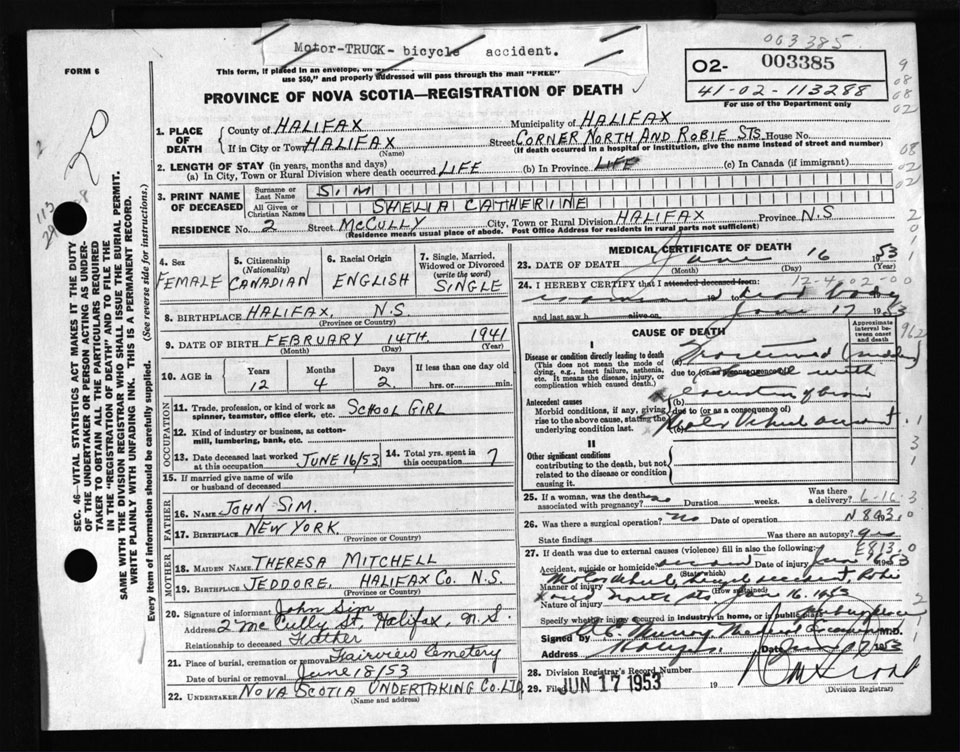 Motor-TRUCK-bicycle accident.
003385
FORM 6
This form, if placed in an envelope,
use $50," and properly addressed will pass through the mail "FREE"
PROVINCE OF NOVA SCOTIA—REGISTRATION OF DEATH
02- 003385
41-02-113288
For use of the Department only
9
08
08
02
1. PLACE OF DEATH
County of HALIFAX
Municipality of HALIFAX
If in City or Town HALIFAX
(Name)
Street CORNER NORTH AND ROBIE STS. House No.
(If death occurred in a hospital or institution, give the name instead of street and number)
2. LENGTH OF STAY (in years, months and days)
(a) In City, Town or Rural Division where death occurred LIFE (b) In Province LIFE (c) In Canada (if immigrant)
3. PRINT NAME OF DECEASED
Surname or Last Name SIM
All Given or Christian Names SHELIA CATHERINE
RESIDENCE No. 2 Street McCULLY City, Town or Rural Division HALIFAX Province N.S
(Residence means usual place of abode. Post Office Address for residents in rural parts not sufficient)
SEC. 46—VITAL STATISTICS ACT MAKES IT THE DUTY
OF THE UNDERTAKER OR PERSON ACTING AS UNDER-
TAKER TO OBTAIN ALL THE PARTICULARS REQUIRED
IN THE "REGISTRATION OF DEATH" AND TO FILE THE
SAME WITH THE DIVISION REGISTRAR WHO SHALL ISSUE THE BURIAL PERMIT.
WRITE PLAINLY WITH UNFADING INK. THIS IS A PERMANENT RECORD.
Every item of information should be carefully supplied. (See reverse side for instructions.)
4. Sex
FEMALE
5. Citizenship
(Nationality)
CANADIAN
6. Racial Origin
ENGLISH
7. Single, Married,
Widowed or Divorced
(write the word)
SINGLE
8. BIRTHPLACE HALIFAX, N.S.
(Province or Country)
9. DATE OF BIRTH FEBRUARY 14TH 1941
(Month) (Day) (Year)
10. AGE in
Years Months Days If less than one day old
12 4 2 hrs. or min.
OCCUPATION
11. Trade, profession, or kind of work as
spinner, teamster, office clerk, etc. SCHOOL GIRL
12. Kind of industry or business, as cotton-
mill, lumbering, bank, etc.
13. Date deceased last worked
at this occupation JUNE 16/53
14. Total yrs. spent in
this occupation 7
15. If married give name of wife
or husband of deceased
FATHER
16. NAME JOHN SIM.
17. BIRTHPLACE NEW YORK
(Province or Country)
MOTHER
18. MAIDEN NAME THERESA MITCHELL
19. BIRTHPLACE JEDDORE, HALIFAX Co. N.S.
(Province or Country)
20. Signature of informant John Sim
Address 2 McCully St, Halifax, N.S.
Relationship to deceased Father
21. Place of burial, cremation or removal Fairview Cemetery
Date of burial or removal June 18/53
22. UNDERTAKER NOVA SCOTIA UNDERTAKING CO. LTD
(Name and address)
MEDICAL CERTIFICATE OF DEATH
23. DATE OF DEATH June 16 1953
(Month) (Day) (Year)
24. I HEREBY CERTIFY that I attended deceased from:
12-4-02-00
19 dead body
and last saw h alive on June 17 1953
CAUSE OF DEATH
Approximate interval between onset and death
I
Disease or condition directly leading to death
(This does not mean the mode of
dying, e.g., heart failure, asthenia,
etc. It means the disease, injury, or
complication which caused death.)
(a)
due to (or as a consequence of)
with
Antecedent causes
Morbid conditions, if any, giving
rise to the above cause, stating the
underlying condition last.
(b) of brain
due to (or as a consequence of)
(c) accident
II
Other significant conditions
contributing to the death, but not
related to the disease or condition
causing it.
25. If a woman, was the death
associated with pregnancy? no Duration weeks. Was there
a delivery? 6-16-3
26. Was there surgical operation? no Date of operation N 803.0
State findings Was there an autopsy? yes
E813.0
27. If death was due to external causes (violence) fill in also the following:
Accident, suicide or homicide? accident Date of injury June 1953
(State which)
Manner of injury accident, Robie
(How sustained)
and North sts June 16. 1953
Nature of injury
Specify whether injury occurred in industry, in home, or in public place
Signed by M.D.
Address Date 1953
28. Division Registrar's Record Number
29. Filed JUN 17 1953 19
(Division Registrar)